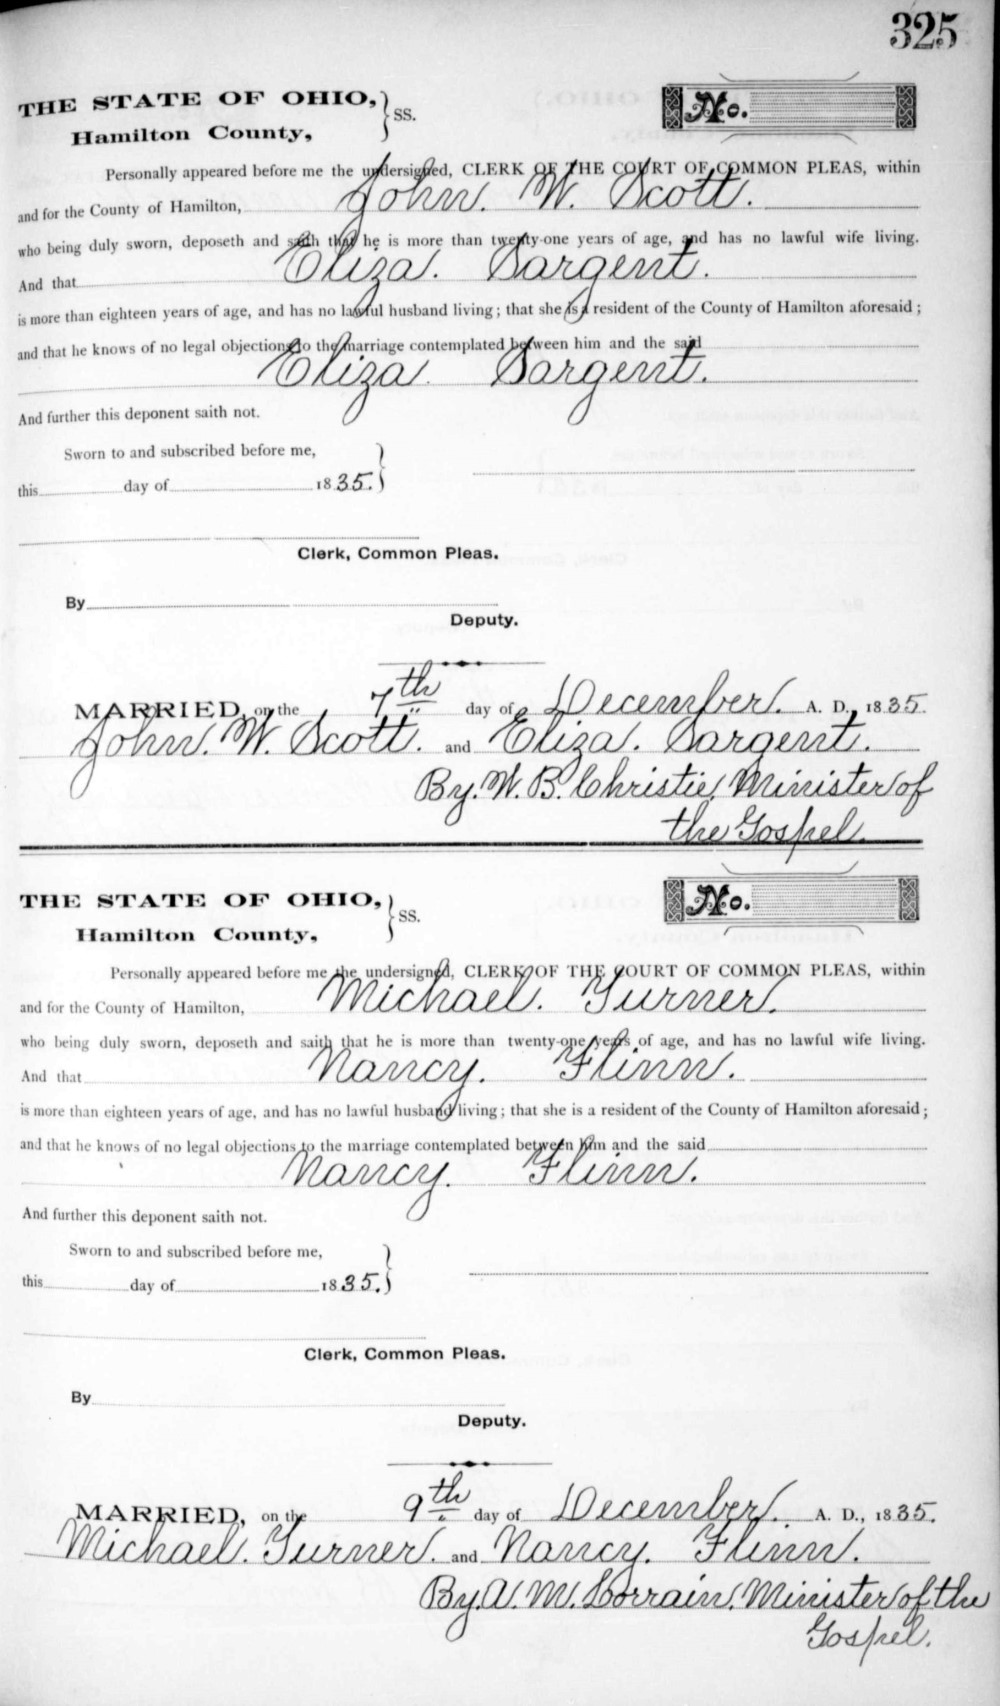 325
THE STATE OF OHIO, } SS. No.
Hamilton County,
Personally appeared before me the undersigned, CLERK OF THE COURT OF COMMON PLEAS, within
and for the County of Hamilton, John. W. Scott.
who being duly sworn, deposeth and saith that he is more than twenty-one years of age, and has no lawful wife living.
And that Eliza. Sargent.
is more than eighteen years of age, and has no lawful husband living; that she is a resident of the County of Hamilton aforesaid;
and that he knows of no legal objections to the marriage contemplated between him and the said
Eliza. Sargent.
And further this deponent saith not.
Sworn to and subscribed before me,
this day of 1835. }
Clerk, Common Pleas.
By
Deputy.
MARRIED, on the 7th day of December. A. D., 1835.
John. W. Scott. and Eliza. Sargent.
By. W. B. Christie, Minister of
the Gospel.
THE STATE OF OHIO, } SS. No.
Hamilton County,
Personally appeared before me the undersigned, CLERK OF THE COURT OF COMMON PLEAS, within
and for the County of Hamilton, Michael. Turner.
who being duly sworn, deposeth and saith that he is more than twenty-one years of age, and has no lawful wife living.
And that Nancy. Flinn.
is more than eighteen years of age, and has no lawful husband living; that she is a resident of the County of Hamilton aforesaid;
and that he knows of no legal objections to the marriage contemplated between him and the said
Nancy. Flinn.
And further this deponent saith not.
Sworn to and subscribed before me,
this day of 1835. }
Clerk, Common Pleas.
By
Deputy.
MARRIED, on the 9th day of December. A. D., 1835.
Michael. Turner. and Nancy. Flinn.
By. A. M. Lorrain. Minister of the
Gospel.